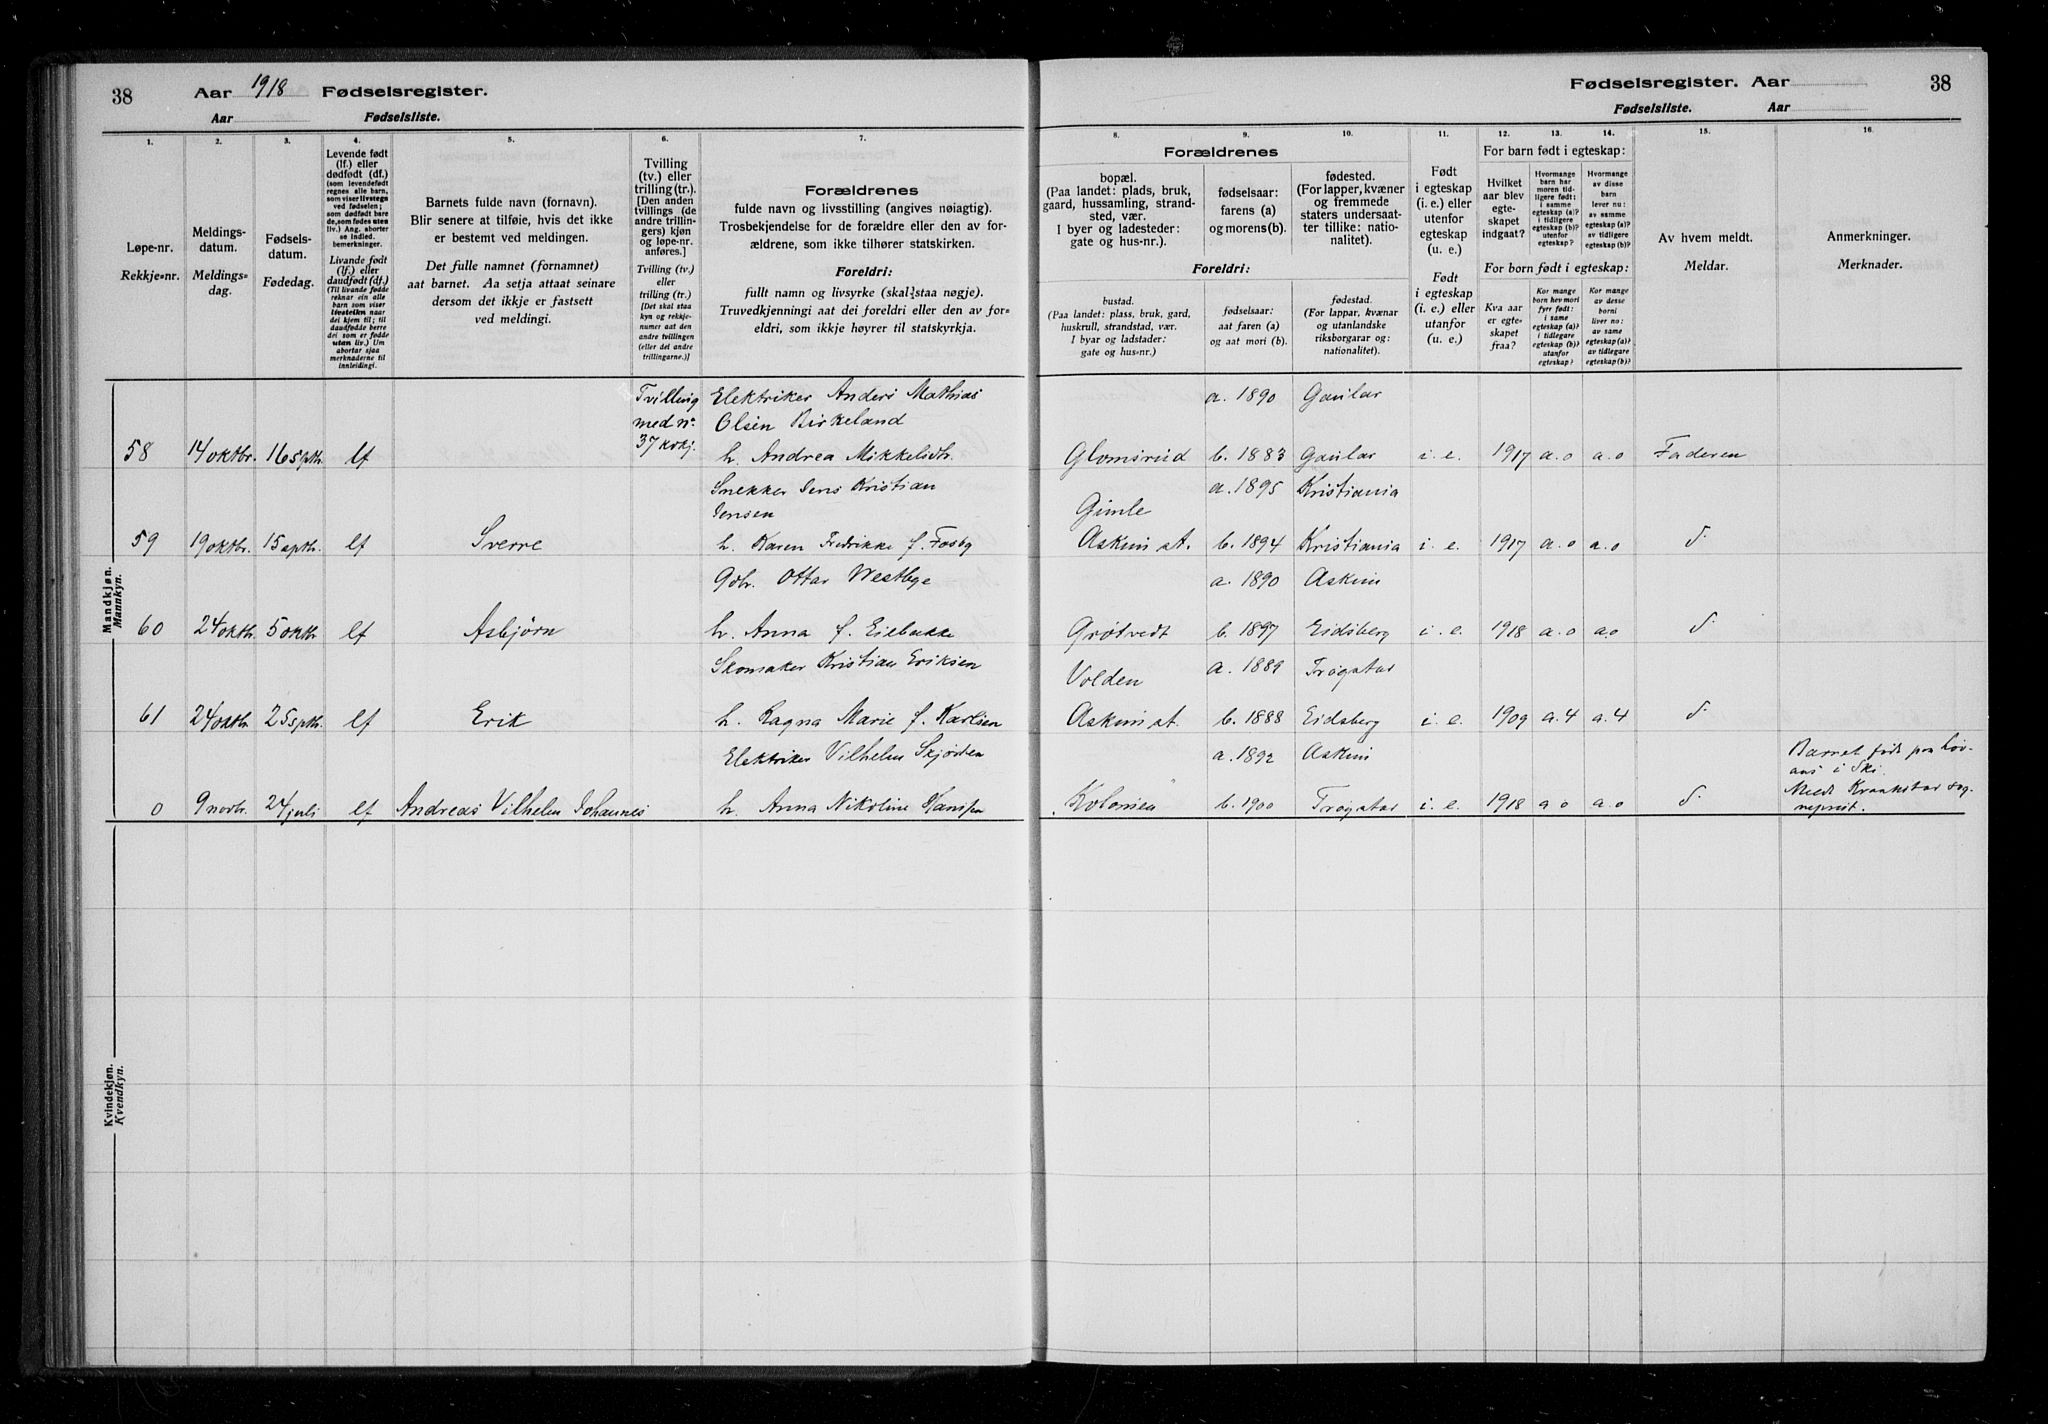 38 Aar 1918 Fødselsregister.
Aar Fødselsliste.
Fødselsregister. Aar 38
Fødselsliste. Aar
1. 2. 3. 4. 5. 6. 7. 8. 9. 10. 11. 12. 13. 14. 15. 16.
Løpe-nr.
Rekkje-nr.
Meldings-
datum.
Meldings-
dag.
Fødsels-
datum.
Fødedag.
Levende født
(lf.) eller
dødfødt (df.)
(som levendefødt
regnes alle barn,
som viser livstegn
ved fødselen;
som dødfødt bare
de, som fødes uten
liv.) Ang. aborter
se indled.
bemerkninger.
Livande født
(lf.) eller
daudfødt (df.)
(Til livande fødde
reknar ein alle
barn som viser
livsteikn naar
dei kjem til; til
daudfødde berre
dei som er fødde
utan liv.) Um
abortar sjaa
merknaderne til
innleidingi.
Barnets fulde navn (fornavn).
Blir senere at tilføie, hvis det ikke
er bestemt ved meldingen.
Det fulle namnet (fornamnet)
aat barnet. Aa setja attaat seinare
dersom det ikkje er fastsett
ved meldingi.
Tvilling
(tv.) eller
trilling (tr.).
[Den anden
tvillings (de
andre trillin-
gers) kjøn
og løpe-nr.
anføres.]
Tvilling (tv.)
eller
trilling (tr.)
[Det skal staa
kyn og rekkje-
numer aat den
andre tvillingen
(eller dei andre
trillingarne.)]
Forældrenes
fulde navn og livsstilling (angives nøiagtig).
Trosbekjendelse for de forældre eller den av for-
ældrene, som ikke tilhører statskirken.
Foreldri:
fullt namn og livsyrke (skal staa nøgje).
Truvedkjenningi aat dei foreldri eller den av for-
eldri, som ikkje høyrer til statskyrkja.
Forældrenes
bopæl.
(Paa landet: plads, bruk,
gaard, hussamling, strand-
sted, vær.
I byer og ladesteder:
gate og hus-nr.).
fødselsaar:
farens (a)
og morens (b).
fødested.
(For lapper, kvæner
og fremmede
staters undersaat-
ter tillike: natio-
nalitet).
Foreldri:
bustad.
(Paa landet: plass, bruk, gard,
huskrull, strandstad, vær.
I byar og ladstader:
gate og hus-nr.)
fødselsaar:
aat faren (a)
og aat mori (b).
fødestad.
(For lappar, kvænar
og utanlandske
riksborgarar og:
nationalitet).
Født
i egteskap
(i. e.) eller
utenfor
egteskap
(u. e.)
Født
i egteskap
(i. e.) eller
utanfor
(u. e.)
For barn født i egteskap:
Hvilket
aar blev
egte-
skapet
indgaat?
Hvormange
barn har
moren tid-
ligere født:
i samme
egteskap (a)?
i tidligere
egteskap (b)?
utenfor
egteskap?
Hvormange
av disse
barn
lever nu:
av samme
egteskap (a)?
av tidligere
egteskap (b)?
For born født i egteskap:
Kva aar
er egte-
skapet
fraa?
Kor mange
born hev mori
fyrr født:
i same
egteskap (a)?
i tidlegare
egteskap (b)?
utanfor
egteskap?
Kor mange
av desse
borni
liver no:
av same
egteskap (a)?
av tidlegare
egteskap (b)?
Av hvem meldt.
Meldar.
Anmerkninger.
Merknader.
Mandkjøn.
Mannkyn.
Tvilling Elektriker Anders Mathias a. 1890 Gaular
med nr. Olsen Birkeland
58 14 oktbr. 16 spth. lf 37 kvkj. h. Andrea Mikkelsdtr. Glomsrud b. 1883 Gaular i. e. 1917 a. 0 a. 0 Faderen
Snekker Jens Kristian a. 1895 Kristiania
Jensen Gimle
59 19 oktbr. 15 spth. lf Sverre h. Karen Fredrikke f. Fosby Askim st. b. 1894 Kristiania i. e. 1917 a. 0 a. 0 d.
Gbr. Ottar Westbye a. 1890 Askim
60 24 oktb. 5 oktb. lf Asbjørn h. Anna f. Eiebakke Grøtvedt b. 1897 Eidsberg i. e. 1918 a. 0 a. 0 d.
Skomaker Kristian Eriksen Volden a. 1889 Trøgstad
61 24 oktb. 25 spth. lf Erik h. Ragna Marie f. Karlsen Askim st. b. 1888 Eidsberg i. e. 1909 a. 4 a. 4 d.
Elektriker Vilhelm a. 1892 Askim Barnet født paa
i Ski.
0 9 novbr. 24 juli lf Andreas Vilhelm Johannes h. Anna Nikoline Kolonien b. 1900 Trøgstad i. e. 1918 a 0 a. 0 d. Meldt Kraakstad sog-
neprest.
Kvindekjøn.
Kvendkyn.